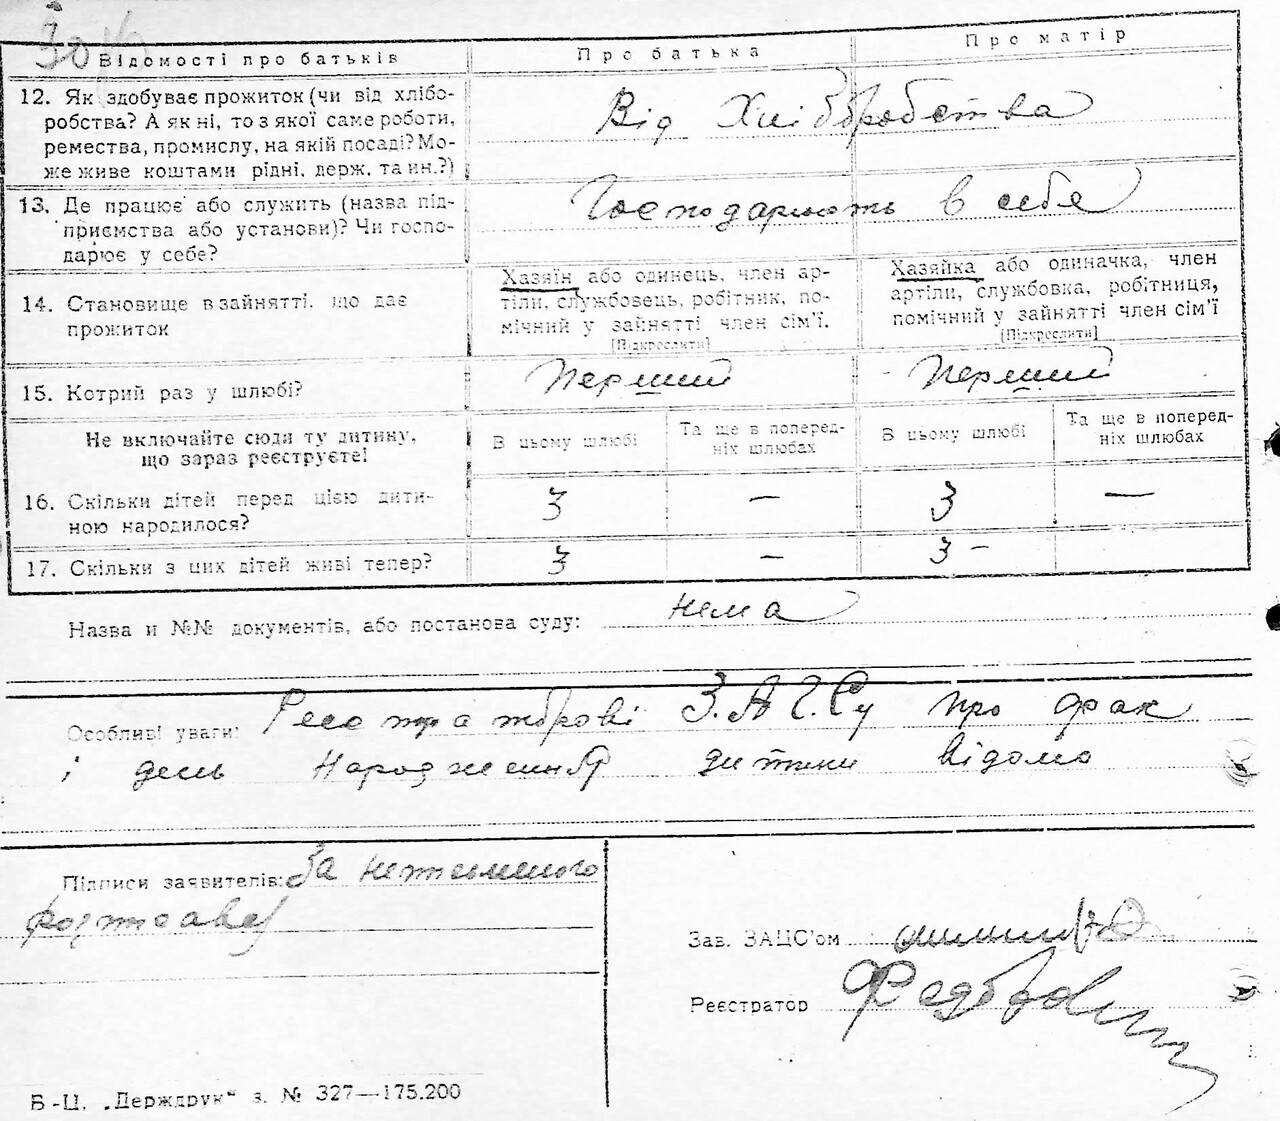 Відомості про батьків Про батька Про матір
12. Як здобуває прожиток (чи від хлібо-
робства? А як ні, то з якої саме роботи,
ремества, промислу, на якій посаді? Мо-
же живе коштами рідні, держ. та ин.?)
Від Хліборобства
13. Де працює або служить (назва під-
приємства або установи)? Чи госпо-
дарює у себе?
Господарюють в себе
14. Становище в зайнятті, що дає
прожиток
Хазяїн або одинець, член ар-
тіли, службовець, робітник, по-
мічний у зайнятті член сім'ї.
[Підкреслити]
Хазяйка або одиначка, член
артіли, службовка, робітниця,
помічний у зайнятті член сім'ї
[Підкреслити]
15. Котрий раз у шлюбі? Перший Перший
Не включайте сюди ту дитину,
що зараз реєструєте!
В цьому шлюбі
Та ще в поперед-
ніх шлюбах
В цьому шлюбі
Та ще в поперед-
ніх шлюбах
16. Скільки дітей перед цією дити-
ною народилося?
3 — 3 —
17. Скільки з цих дітей живі тепер? 3 — 3 —
Назва и №№ документів, або постанова суду: нема
Особливі уваги: З.А.Г.Су про фак
і день народження дитини відомо
Підписи заявителів: За неписьменого
Зав. ЗАЦС'ом
Реєстратор
Б-Ц. „Держдрук“ з. № 327—175.200